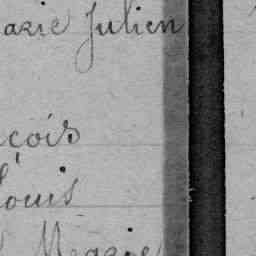 arie Julien
çois
Louis
Marie